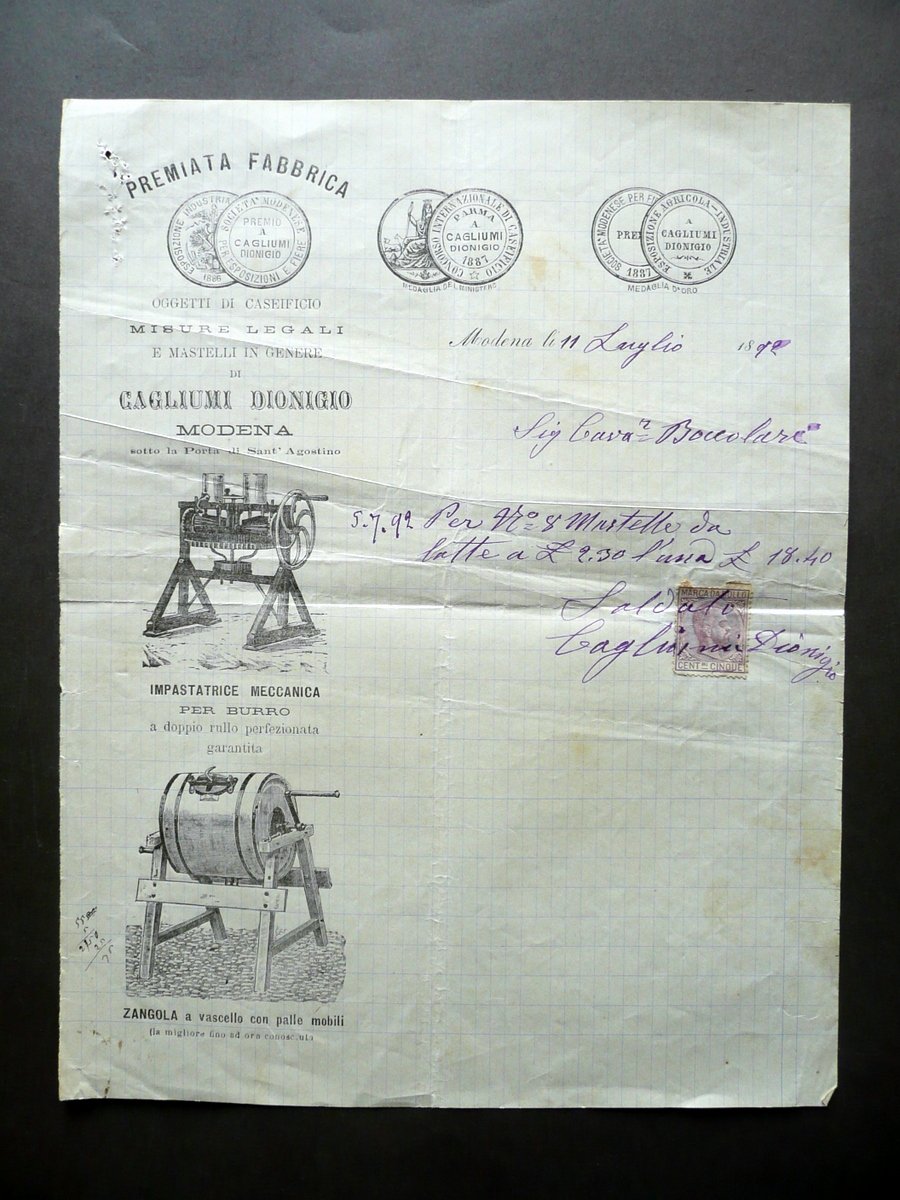 PREMIATA FABBRICA
ESPOSIZIONE INDUSTRIA
1886
SOCIETA' MODENESE PER ESPOSIZIONI E FIERE
PREMIO
A
CAGLIUMI
DIONIGIO
CONCORSO INTERNAZIONALE DI CASEIFICIO
PARMA
A
CAGLIUMI
DIONIGIO
1887
MEDAGLIA DEL MINISTERO
SOCIETA' MODENESE PER
1887
ESPOSIZIONE AGRICOLA-INDUSTRIALE
A
CAGLIUMI
DIONIGIO
MEDAGLIA D'ORO
OGGETTI DI CASEIFICIO
MISURE LEGALI
E MASTELLI IN GENERE
DI
CAGLIUMI DIONIGIO
MODENA
sotto la Porta di Sant' Agostino
Modena li 11 Luglio 1892
Sig Cavar Boccolari
5.7.92 Per No 8 Mastelle da
latte a £ 2.30 l'una £ 18.40
Saldato
Cagliumi Dionigio
MARCA DA BOLLO
CENT.MI CINQUE
IMPASTATRICE MECCANICA
PER BURRO
a doppio rullo perfezionata
garantita
ZANGOLA a vascello con palle mobili
(la migliore fino ad ora conosciuta